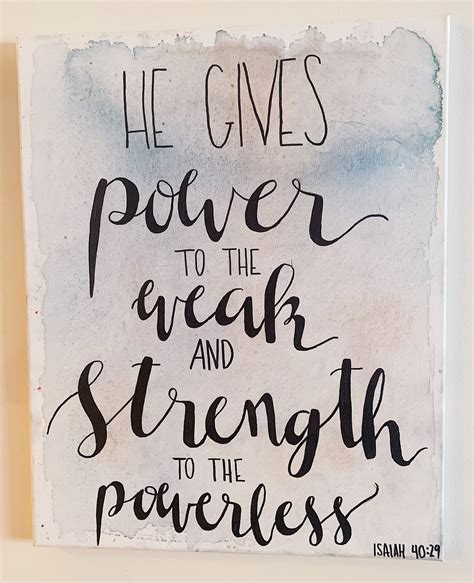 HE GIVES
power
TO THE
weak
AND
strength
TO THE
powerless
ISAIAH 40:29